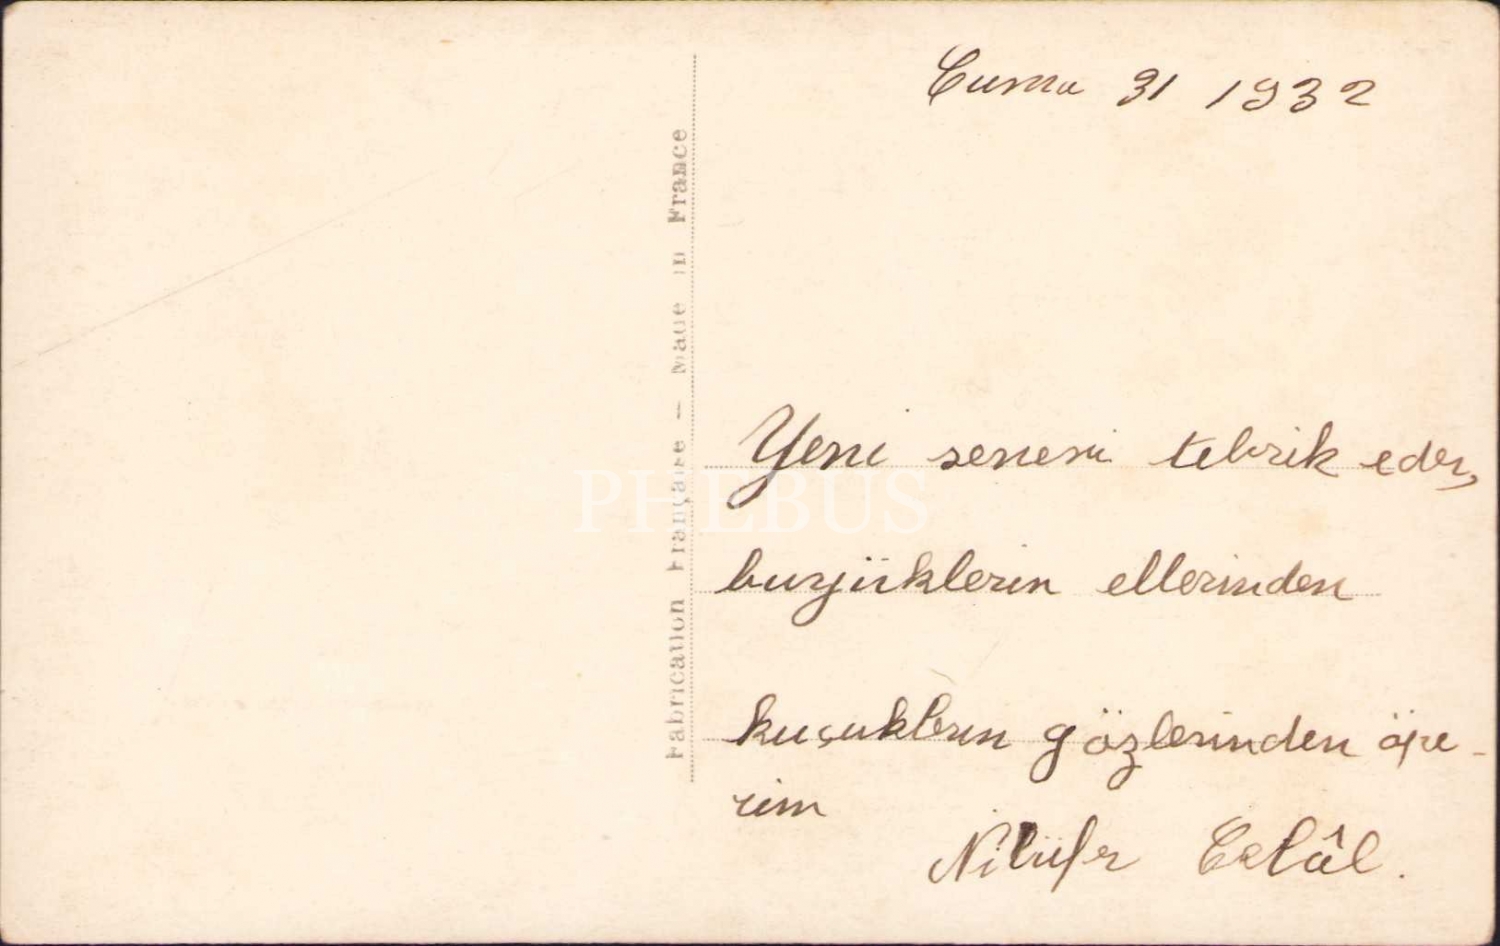 Cuma 31 1932
Fabrication Française — Made in France
Yeni seneni tebrik eder,
buyüklerin ellerinden
kuçuklerin gözlerinden öpe-
rim
Nilüfer Celâl.
PHEBUS